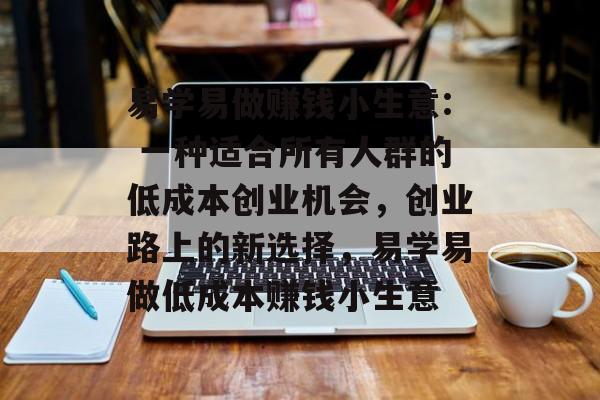 易学易做赚钱小生意：
一种适合所有人群的
低成本创业机会，创业
路上的新选择，易学易
做低成本赚钱小生意